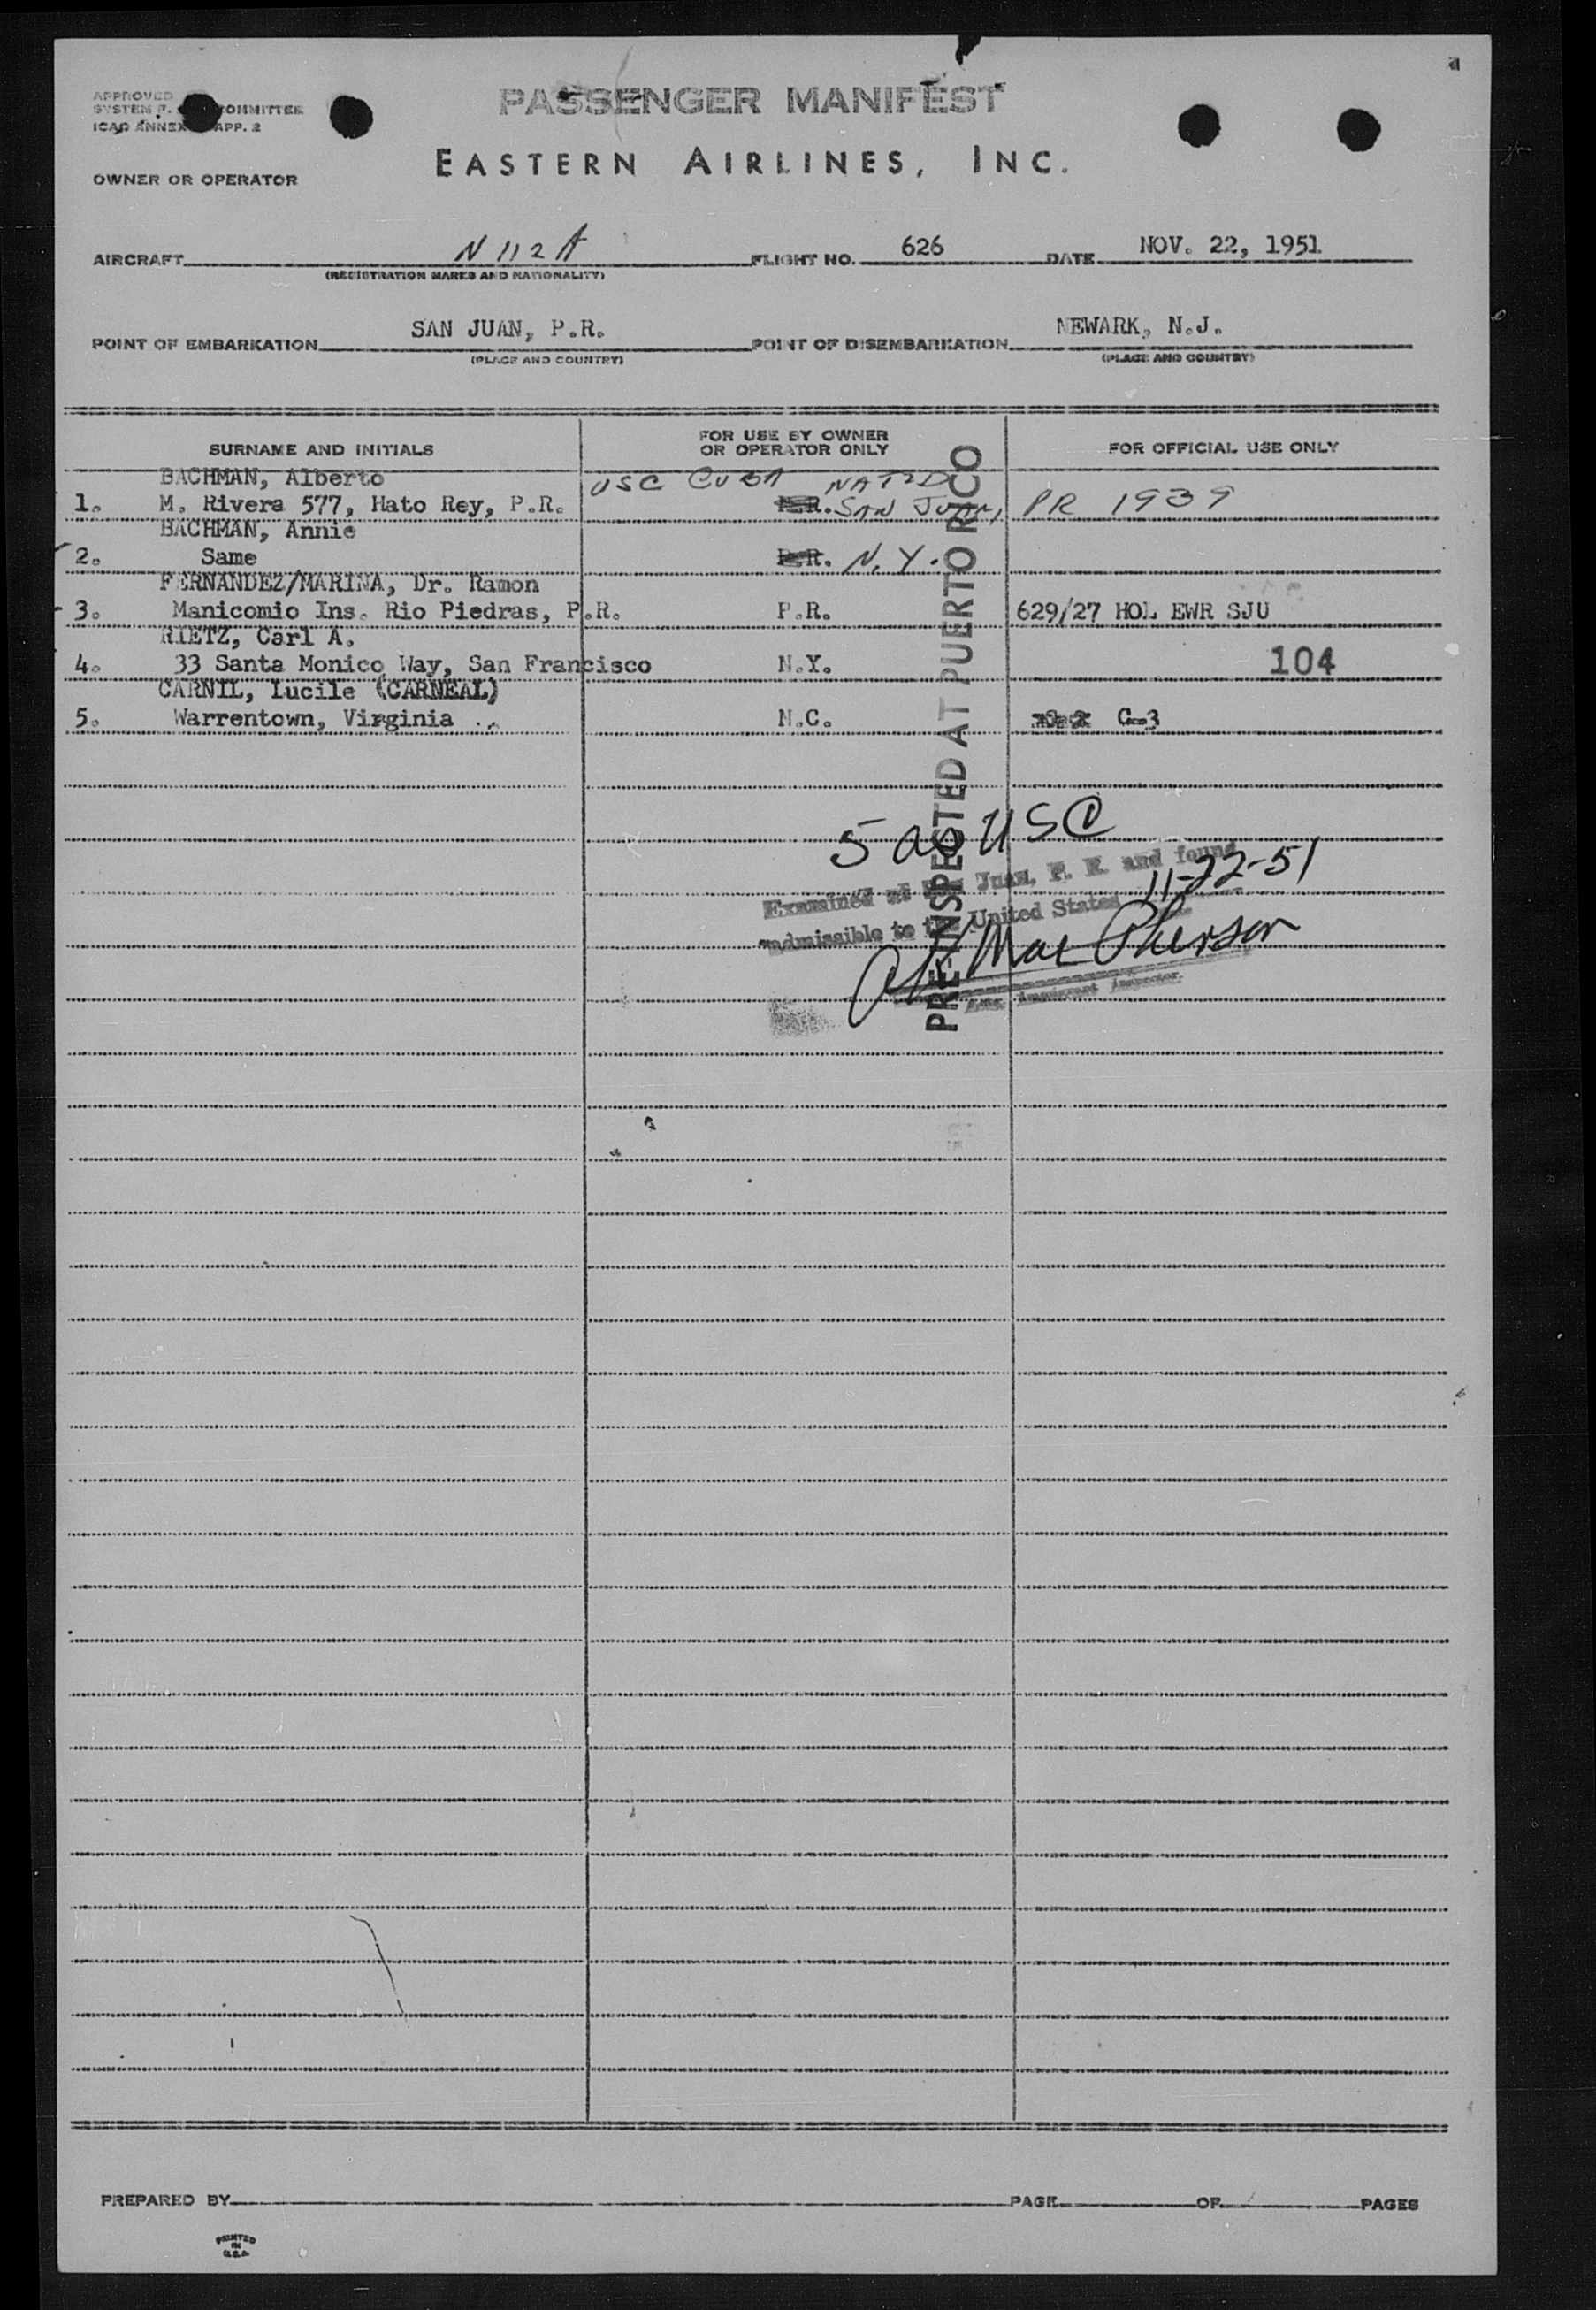 APPROVED
SYSTEM COMMITTEE
ICAO ANNEX APP. 2
PASSENGER MANIFEST
EASTERN AIRLINES, INC.
OWNER OR OPERATOR
AIRCRAFT N 112 A FLIGHT NO. 626 DATE NOV. 22, 1951
(REGISTRATION MARKS AND NATIONALITY)
POINT OF EMBARKATION SAN JUAN, P.R. POINT OF DISEMBARKATION NEWARK, N.J.
(PLACE AND COUNTRY) (PLACE AND COUNTRY)
SURNAME AND INITIALS FOR USE BY OWNER OR OPERATOR ONLY FOR OFFICIAL USE ONLY
BACHMAN, Alberto USC CUBA NAT'D
1. M. Rivera 577, Hato Rey, P.R. P.R. SAN JUAN, PR 1939
BACHMAN, Annie
2. Same P.R. N.Y.
FERNANDEZ/MARINA, Dr. Ramon
3. Manicomio Ins. Rio Piedras, P.R. P.R. 629/27 HOL EWR SJU
RIETZ, Carl A.
4. 33 Santa Monico Way, San Francisco N.Y. 104
CARNIL, Lucile (CARNEAL)
5. Warrentown, Virginia N.C. C-3
PRE-INSPECTED AT PUERTO RICO
5 as USC
Examined at San Juan, P. R. and found
11-22-51
admissible to the United States
MacPherson
Immigrant Inspector
PREPARED BY PAGE OF PAGES
PRINTED
IN
U.S.A.